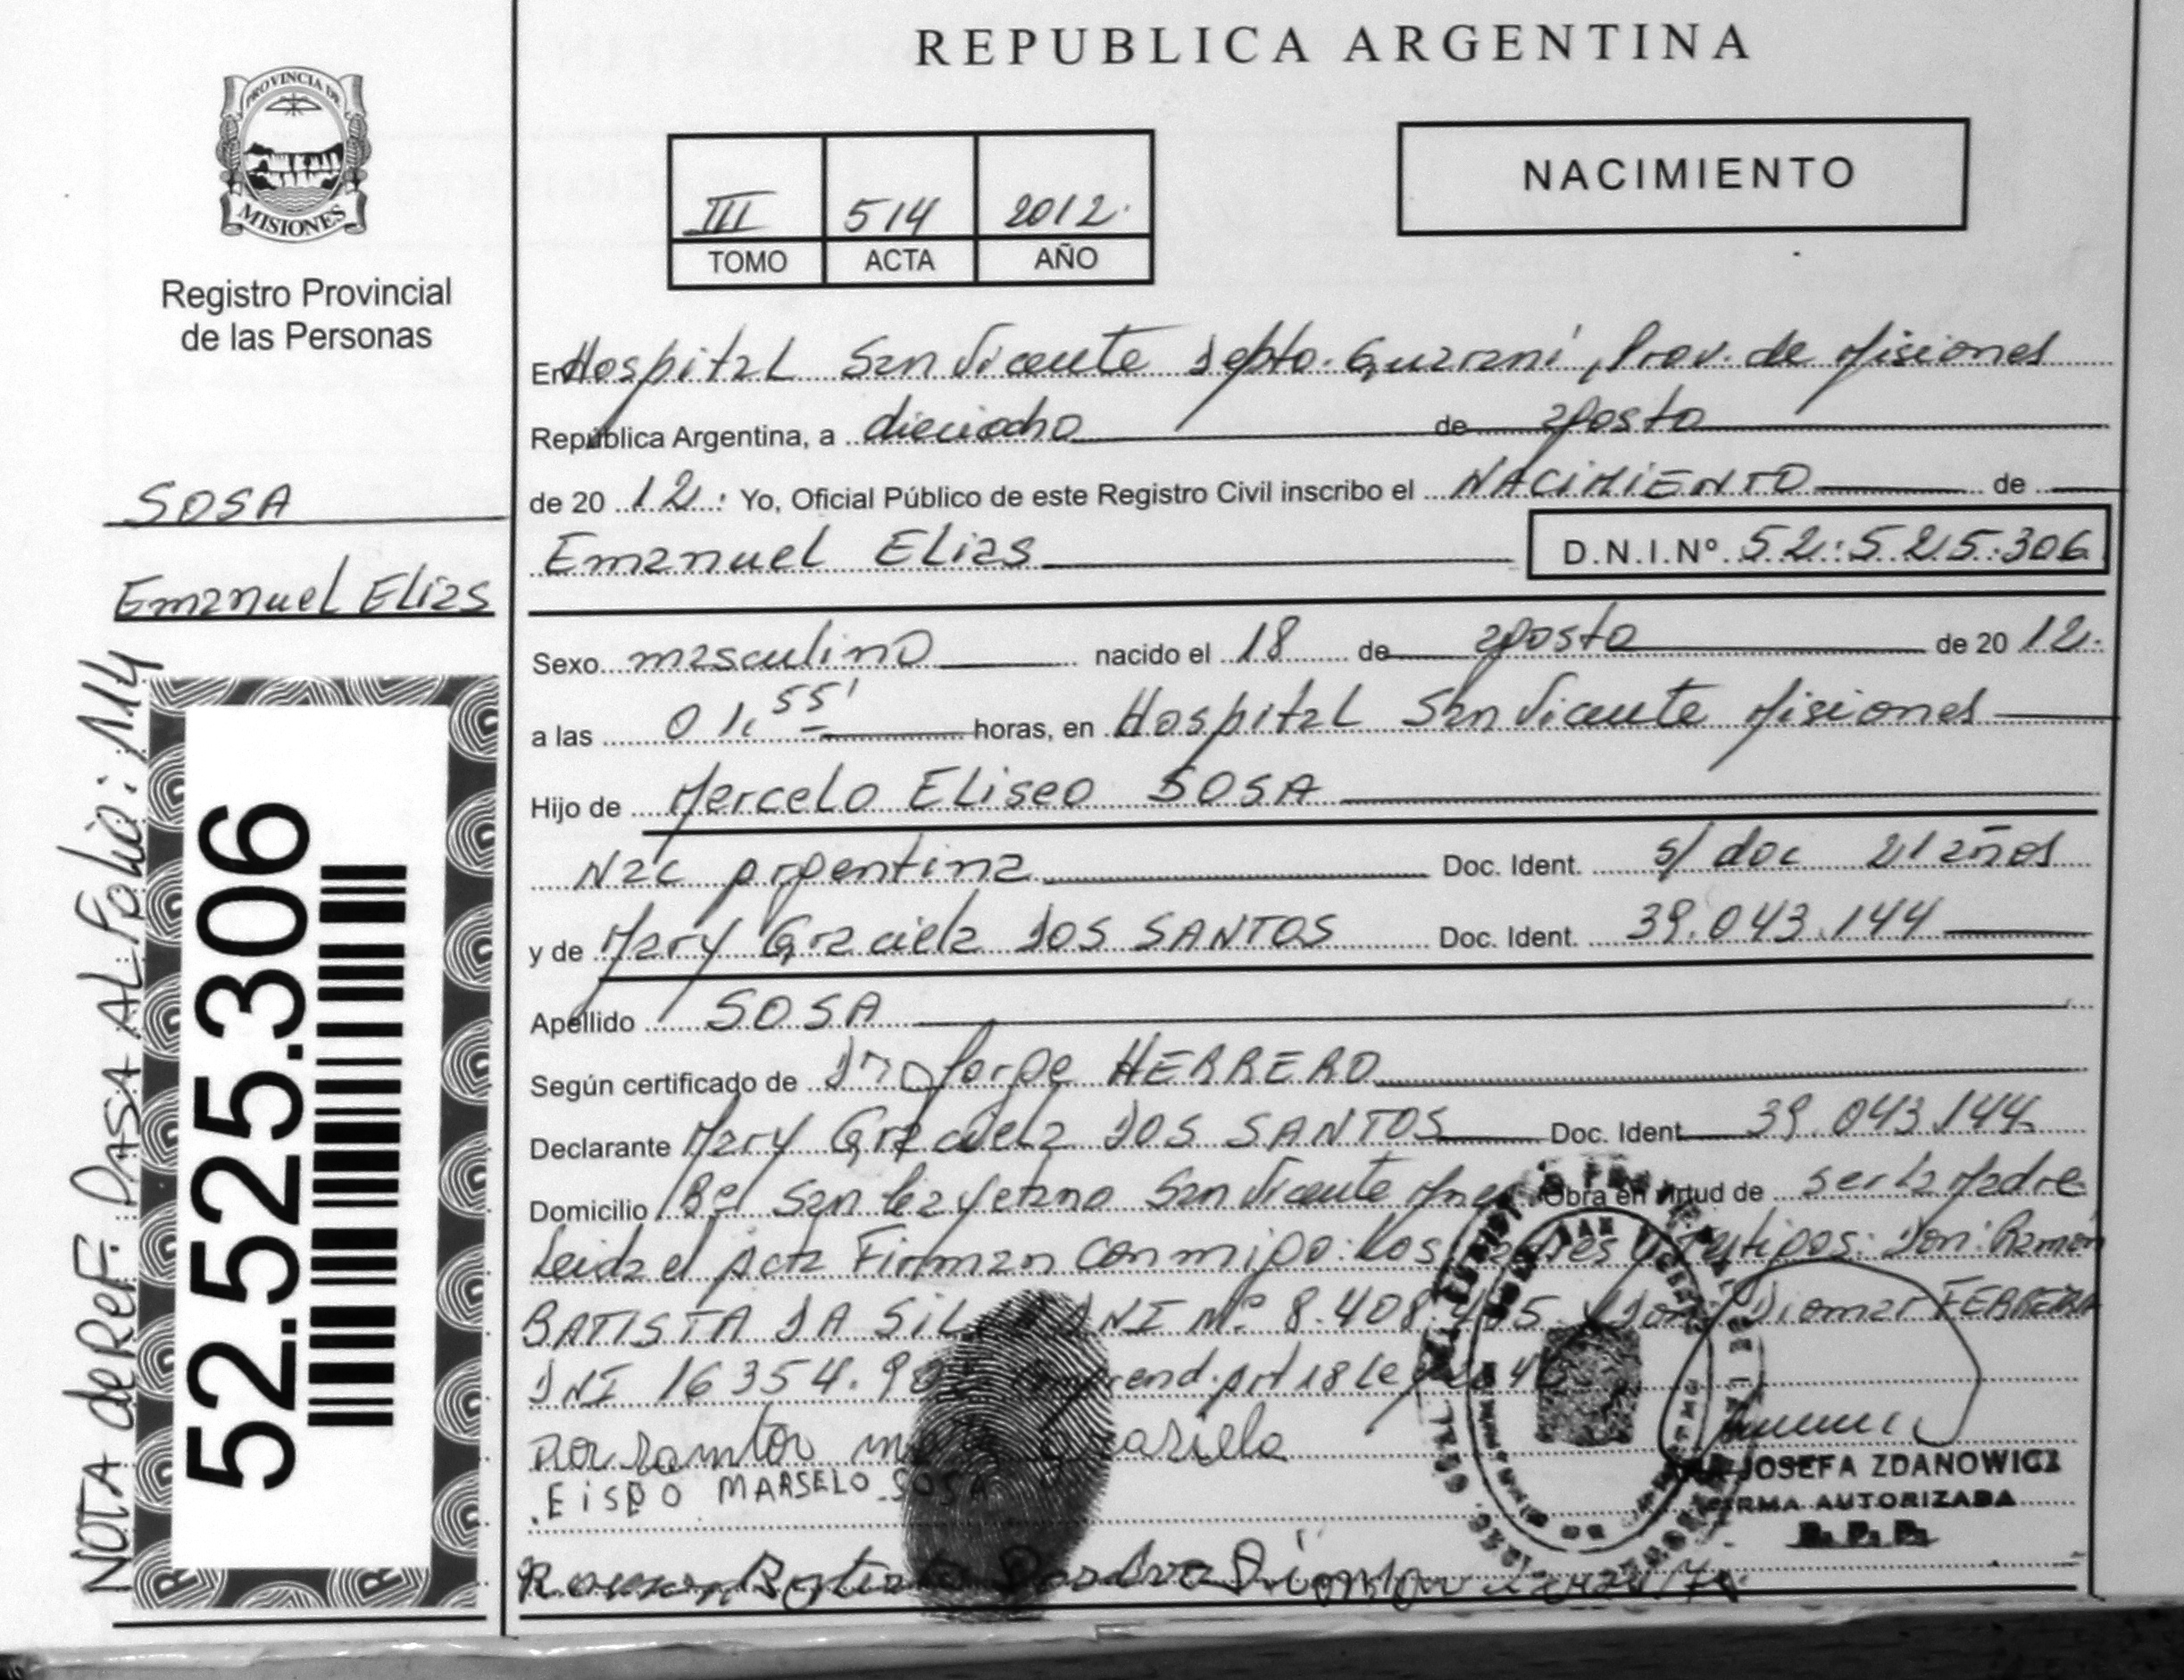 REPUBLICA ARGENTINA
PROVINCIA DE
MISIONES
Registro Provincial
de las Personas
NACIMIENTO
III 514 2012
TOMO ACTA AÑO
En Hospital San Vicente Depto. Guaraní, Prov. de Misiones
República Argentina, a dieciocho de agosto
de 20 12. Yo, Oficial Público de este Registro Civil inscribo el NACIMIENTO de
Emanuel Elias D.N.I.Nº 52.525.306
SOSA
Emanuel Elias
NOTA de Ref. Pasa AL Folio: 114
52.525.306
Sexo masculino nacido el 18 de agosto de 20 12.
a las 01,55' horas, en Hospital San Vicente Misiones
Hijo de Marcelo Eliseo SOSA
Nac Argentina Doc. Ident. s/ doc 21 años
y de Mary Graciela DOS SANTOS Doc. Ident. 39.043.144
Apellido SOSA
Según certificado de Dr Jorge HERRERO
Declarante Mary Graciela DOS SANTOS Doc. Ident 39.043.144
Domicilio Bº San Cayetano San Vicente Mnes Obra en virtud de ser la Madre
Leida el Acta Firman conmigo: Los Padres y Testigos: Don: Ramón
BATISTA DA SIL DNI Nº 8.408. Don Diomar FERREIRA
DNI 16 354. art 18 Ley
Dos Santos graziela
Eispo MARSELO SOSA
JOSEFA ZDANOWICZ
FIRMA AUTORIZADA
R. P. P.
Ramon Batista Dasilva Diomar